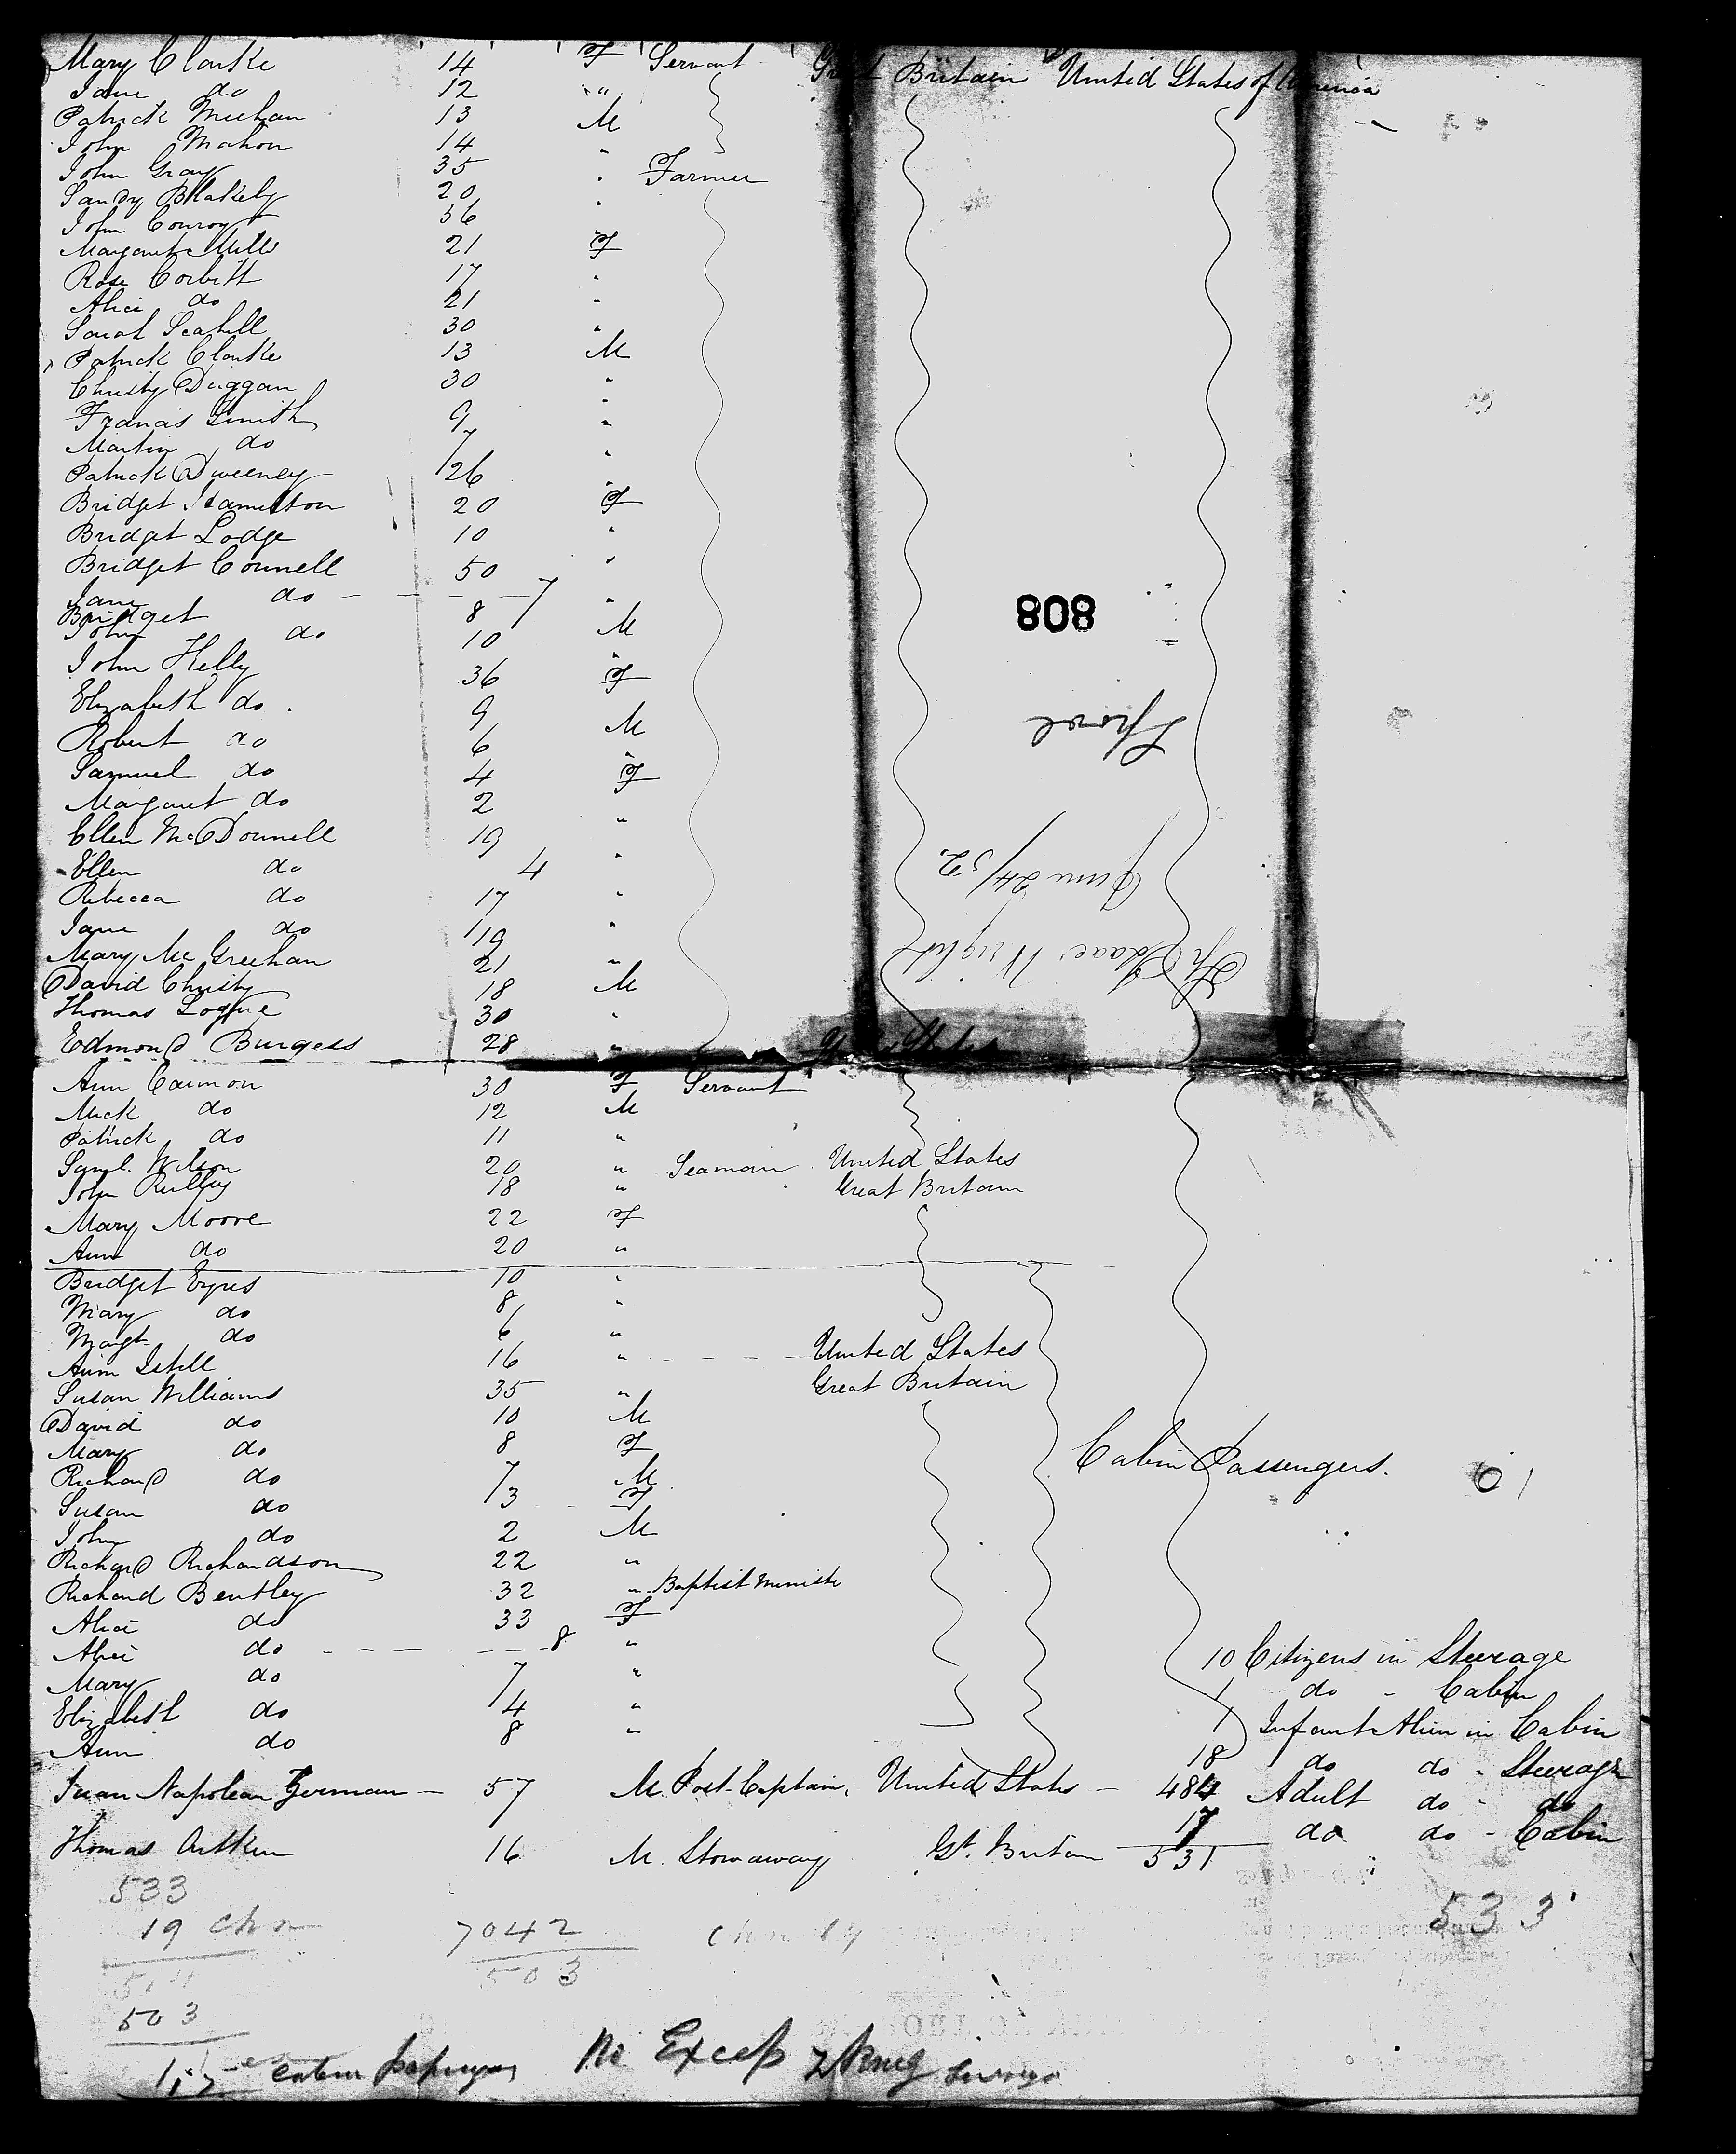 Mary Clarke 14 F Servant Great Britain United States of America
Jane do 12 "
Patrick Meehan 13 M
John Mahon 14 "
John Gray 35 " Farmer
Sandy Blakely 20 "
John Conroy 36
Margaret Mills 21 F
Rose Corbitt 17 "
Alice do 21 "
Sarah Scahill 30 "
Patrick Clarke 13 M
Christy Duggan 30 "
Francis Smith 9 "
Martin do 7 "
Patrick Sweeney 26 "
Bridget Hamilton 20 F
Bridget Lodge 10 "
Bridget Connell 50 "
Jane do 7 "
Bridget 8
John do 10 M
John Kelly 36 "
Elizabeth do. 9 F
Robert do 6 M
Samuel do 4 "
Margaret do 2 F
Ellen McDonnell 19 "
Ellen do 4 "
Rebecca do 17 "
Jane do 19 "
Mary McGreehan 21 "
David Christy 18 M
Thomas Logue 30 "
Edmond Burgess 28 "
Ann Cannon 30 F Servant
Mick do 12 M
Patrick do 11 "
Saml. Wilson 20 " Seaman United States
John Reilly 18 " Great Britain
Mary Moore 22 F
Ann do 20 "
Bridget Eyres 10 "
Mary do 8 "
Margt do 6 "
Ann Istill 16 " United States
Susan Williams 35 " Great Britain
David do 10 M
Mary do 8 F
Richard do 7 M
Susan do 3 F
John do 2 M
Richard Richardson 22 "
Richard Bentley 32 " Baptist Ministe
Alice do 33 F
Alice do 8 "
Mary do 7 "
Elizabeth do 4 "
Ann do 8 "
Juan Napolean Zerman 57 M Post Captain, United States
Thomas Aitken 16 M. Stowaway Gt. Britain
808
June 24/52.
Sh Isaac Wright
Cabin Passengers.
10 Citizens in Steerage
1 do - Cabin
1 Infant Alien in Cabin
18 do do - Steerage
484 Adult do " do
17 do do - Cabin
531
533
533
19 chn
514
503
7042
503
Cabin passengers